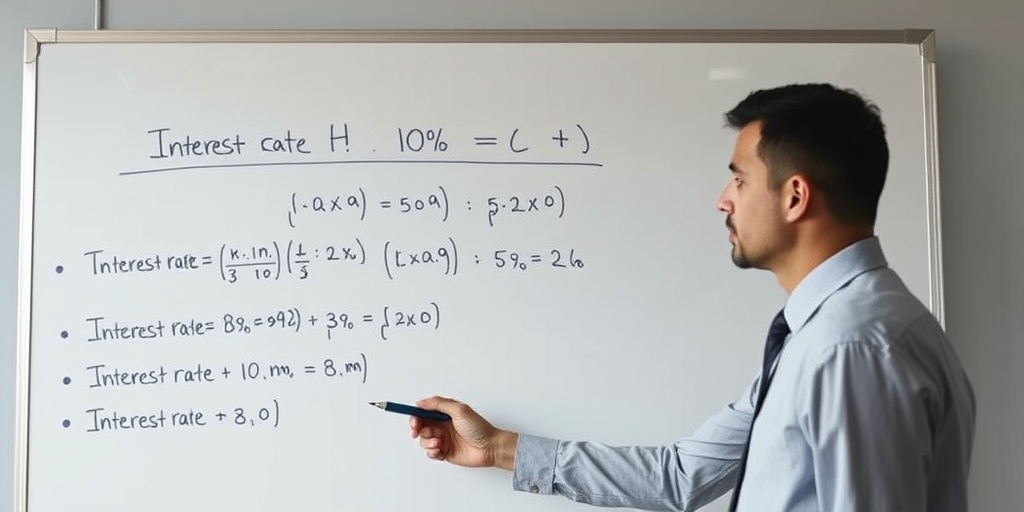 Interest cate H! . 10% = ( + )
(·a x a) = 50a) : 5·2x0)
• Interest rate = (k·.in. / 3 10) (1/5 : 2x) (txa.9) : 5% = 2%
• Interest rate = 8% = 942) + 3% = {2x0)
• Interest rate + 10.nn. = 8.nn)
• Interest rate + 8,0)